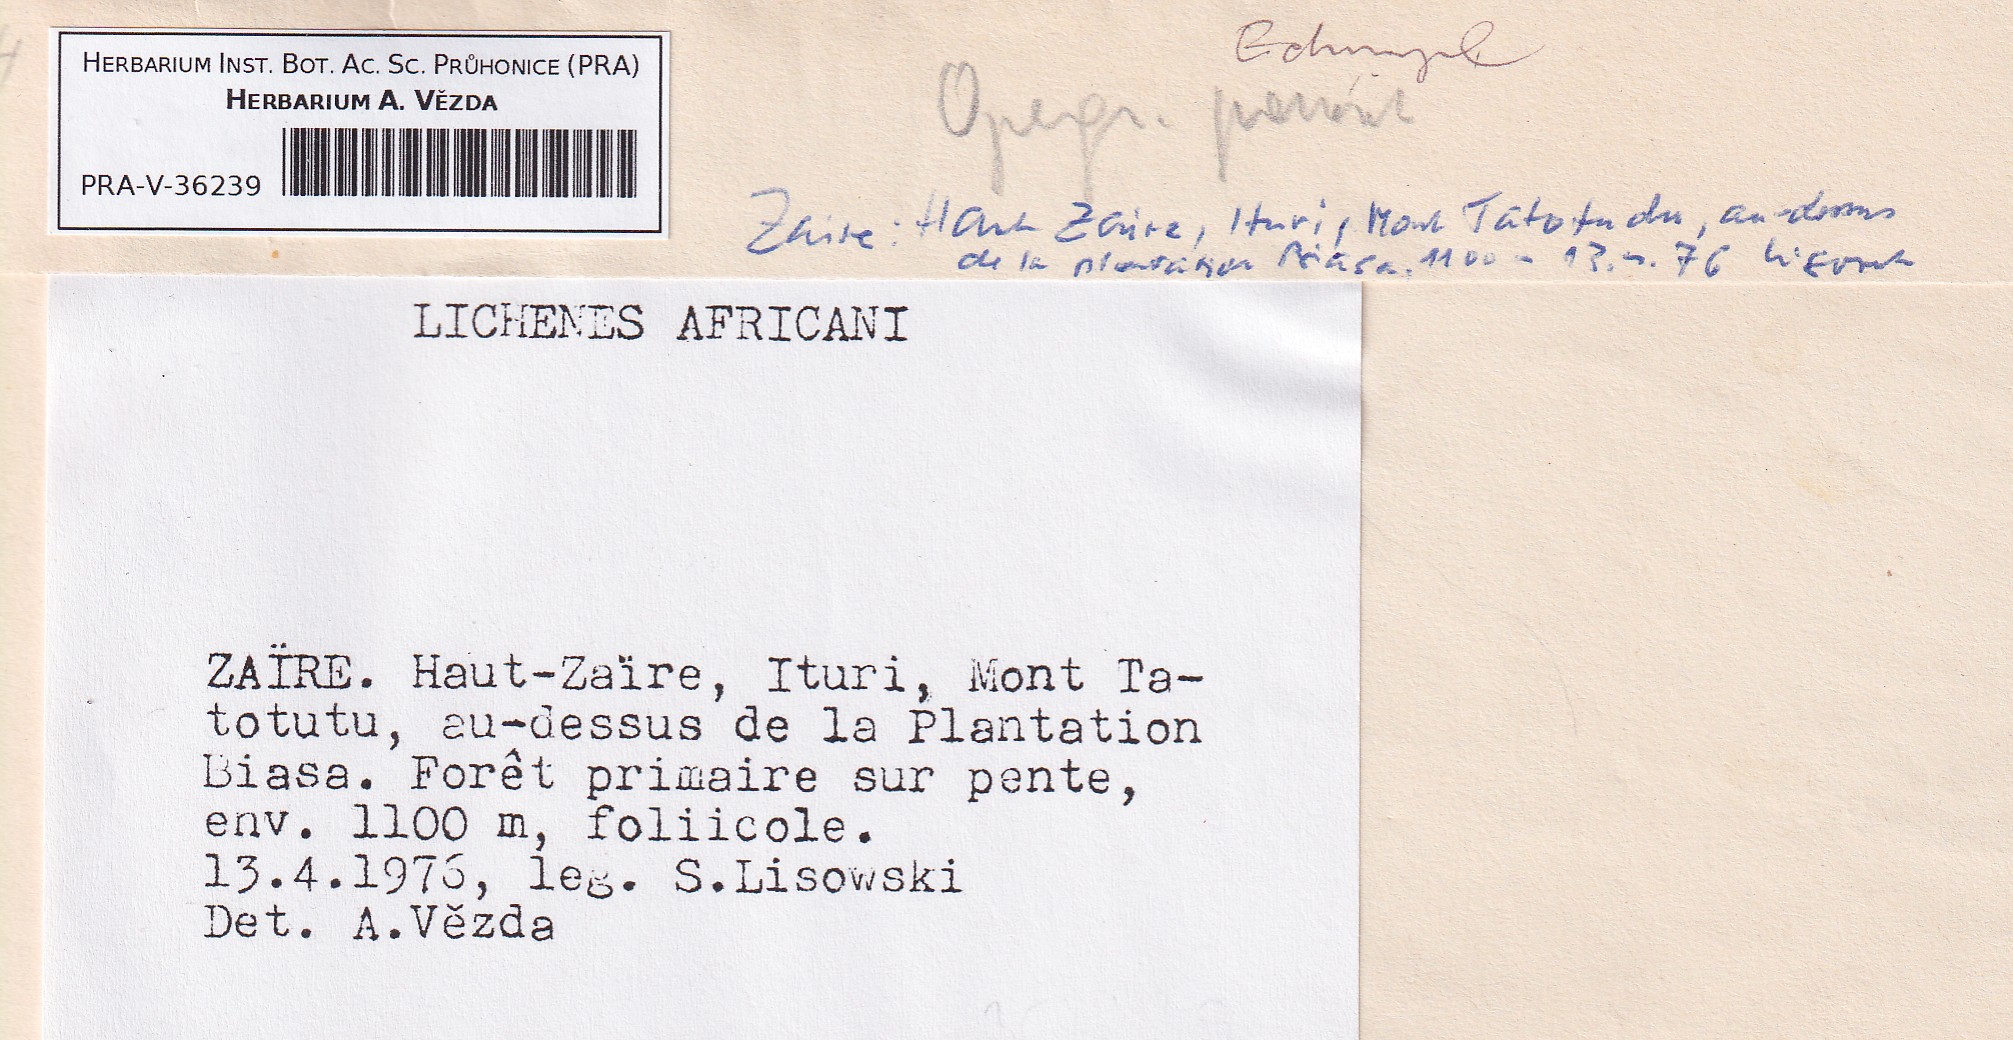 HERBARIUM INST. BOT. AC. SC. PRŮHONICE (PRA)
HERBARIUM A. VĚZDA
PRA-V-36239
Opegr.
Zaire: Haut Zaire, Ituri, Mont Tatotudu, au-dessus
de la plantation Biasa. 1100 m 13.4.76
LICHENES AFRICANI
ZAÏRE. Haut-Zaïre, Ituri, Mont Ta-
totutu, au-dessus de la Plantation
Biasa. Forêt primaire sur pente,
env. 1100 m, foliicole.
13.4.1976, leg. S.Lisowski
Det. A.Vězda